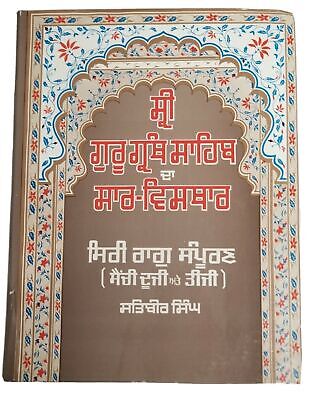 ਸ੍ਰੀ
ਗੁਰੂ ਗ੍ਰੰਥ ਸਾਹਿਬ
ਦਾ
ਸਾਰ-ਵਿਸਥਾਰ
ਸਿਰੀ ਰਾਗੁ ਸੰਪੂਰਣ
(ਸੈਂਚੀ ਦੂਜੀ ਅਤੇ ਤੀਜੀ)
ਸਤਿਬੀਰ ਸਿੰਘ